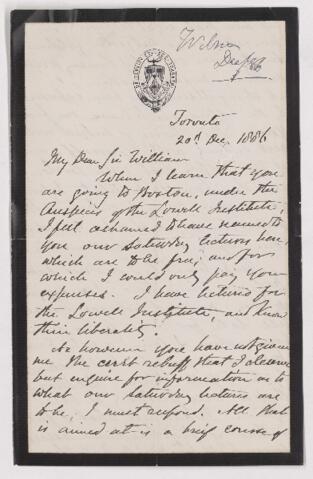 Wilson
Dec 86
Toronto
20th Dec. 1886
My Dear Sir William
When I learn that you
are going to Boston, under the
Auspices of the Lowell Institute,
I feel ashamed to have named to
you our Saturday lectures here,
which are to be free, and for
which I could only pay your
expenses. I have lectured for
the Lowell Institute, and know
their liberality.
As however you have not given
me the curt rebuff that I deserve
but enquire for information as to
what our Saturday lectures are
to be, I must respond. All that
is aimed at is a brief course of